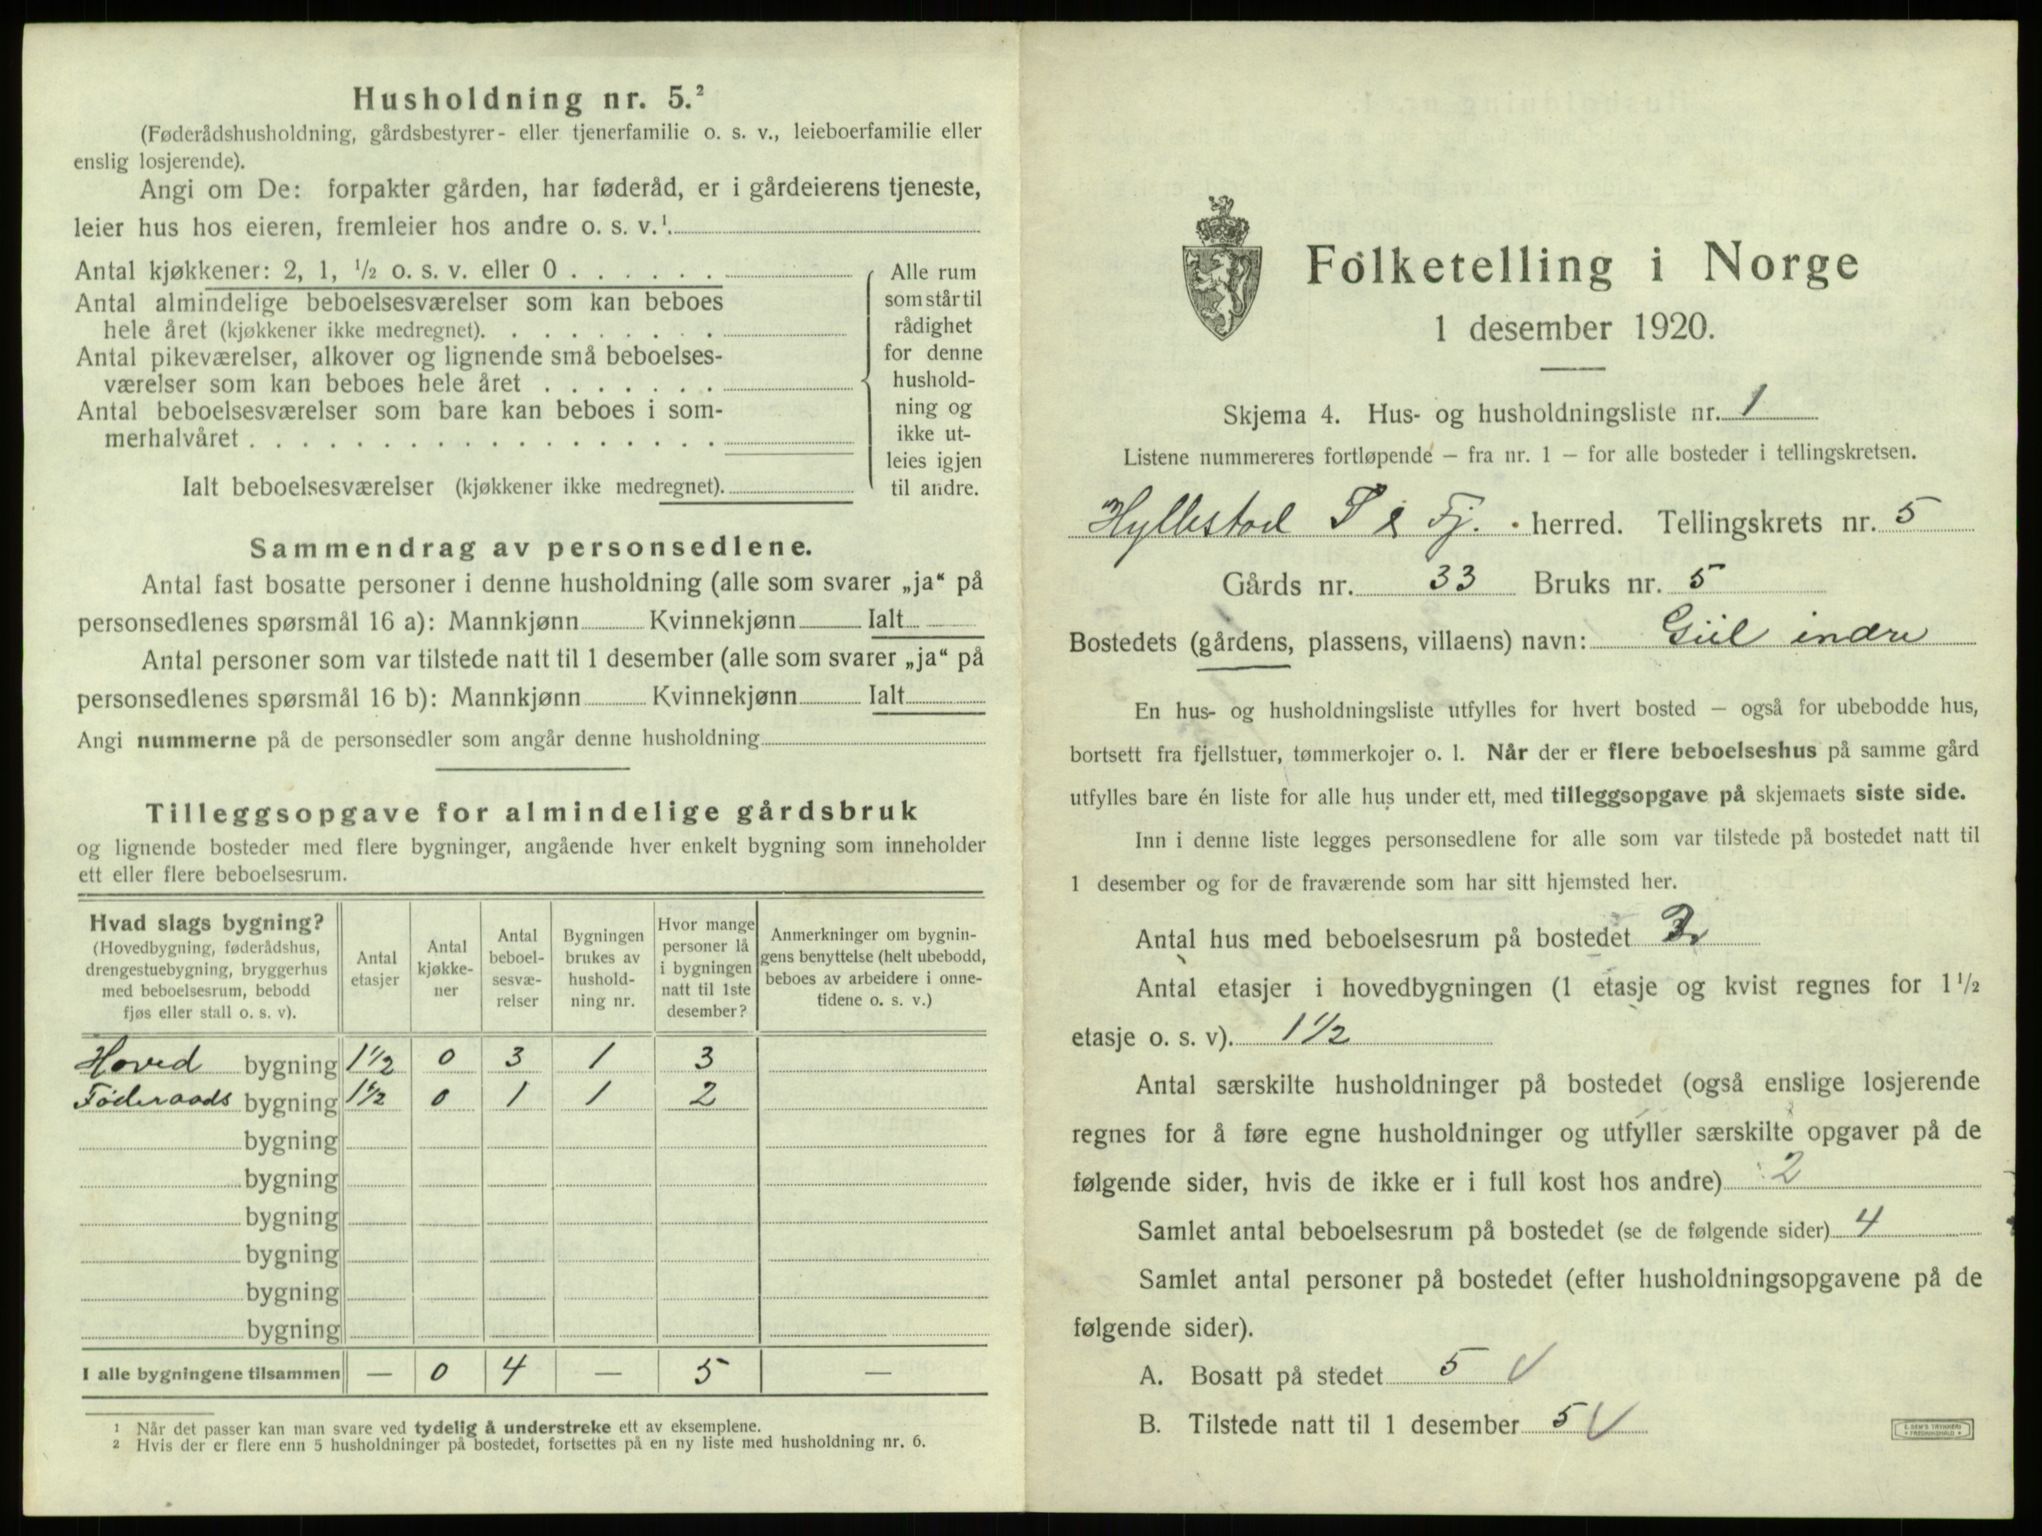 Husholdning nr. 5.²
(Føderådshusholdning, gårdsbestyrer- eller tjenerfamilie o. s. v., leieboerfamilie eller
enslig losjerende).
Angi om De: forpakter gården, har føderåd, er i gårdeierens tjeneste,
leier hus hos eieren, fremleier hos andre o. s. v.¹.
Antal kjøkkener: 2, 1, ½ o. s. v. eller 0 . . . . . .
Antal almindelige beboelsesværelser som kan beboes
hele året (kjøkkener ikke medregnet). . . . . . . . .
Antal pikeværelser, alkover og lignende små beboelses-
værelser som kan beboes hele året . . . . . . .
Antal beboelsesværelser som bare kan beboes i som-
merhalvåret . . . . . . . . . . . . . . . . . .
Ialt beboelsesværelser (kjøkkener ikke medregnet).
Alle rum
som står til
rådighet
for denne
hushold-
ning og
ikke ut-
leies igjen
til andre.
Sammendrag av personsedlene.
Antal fast bosatte personer i denne husholdning (alle som svarer „ja“ på
personsedlenes spørsmål 16 a): Mannkjønn Kvinnekjønn Ialt
Antal personer som var tilstede natt til 1 desember (alle som svarer „ja“ på
personsedlenes spørsmål 16 b): Mannkjønn Kvinnekjønn Ialt
Angi nummerne på de personsedler som angår denne husholdning
Tilleggsopgave for almindelige gårdsbruk
og lignende bosteder med flere bygninger, angående hver enkelt bygning som inneholder
ett eller flere beboelsesrum.
Hvad slags bygning?
(Hovedbygning, føderådshus,
drengestuebygning, bryggerhus
med beboelsesrum, bebodd
fjøs eller stall o. s. v).
Antal
etasjer
Antal
kjøkke-
ner
Antal
beboel-
sesvæ-
relser
Bygningen
brukes av
hushold-
ning nr.
Hvor mange
personer lå
i bygningen
natt til 1ste
desember?
Anmerkninger om bygnin-
gens benyttelse (helt ubebodd,
beboes av arbeidere i onne-
tidene o. s. v.)
Hoved bygning 1½ 0 3 1 3
Föderaads bygning 1½ 0 1 1 2
bygning
bygning
bygning
bygning
bygning
bygning
I alle bygningene tilsammen — 0 4 — 5 —
¹ Når det passer kan man svare ved tydelig å understreke ett av eksemplene.
² Hvis der er flere enn 5 husholdninger på bostedet, fortsettes på en ny liste med husholdning nr. 6.
Folketelling i Norge
1 desember 1920.
Skjema 4. Hus- og husholdningsliste nr. 1
Listene nummereres fortløpende — fra nr. 1 — for alle bosteder i tellingskretsen.
Hyllestad S & Fj. herred. Tellingskrets nr. 5
Gårds nr. 33 Bruks nr. 5
Bostedets (gårdens, plassens, villaens) navn: Giil indre
En hus- og husholdningsliste utfylles for hvert bosted — også for ubebodde hus,
bortsett fra fjellstuer, tømmerkojer o. l. Når der er flere beboelseshus på samme gård
utfylles bare én liste for alle hus under ett, med tilleggsopgave på skjemaets siste side.
Inn i denne liste legges personsedlene for alle som var tilstede på bostedet natt til
1 desember og for de fraværende som har sitt hjemsted her.
Antal hus med beboelsesrum på bostedet 2
Antal etasjer i hovedbygningen (1 etasje og kvist regnes for 1½
etasje o. s. v). 1½
Antal særskilte husholdninger på bostedet (også enslige losjerende
regnes for å føre egne husholdninger og utfyller særskilte opgaver på de
følgende sider, hvis de ikke er i full kost hos andre) 2
Samlet antal beboelsesrum på bostedet (se de følgende sider) 4
Samlet antal personer på bostedet (efter husholdningsopgavene på de
følgende sider).
A. Bosatt på stedet 5
B. Tilstede natt til 1 desember 5
E. SEM'S TRYKKERI
FREDRIKSHALD